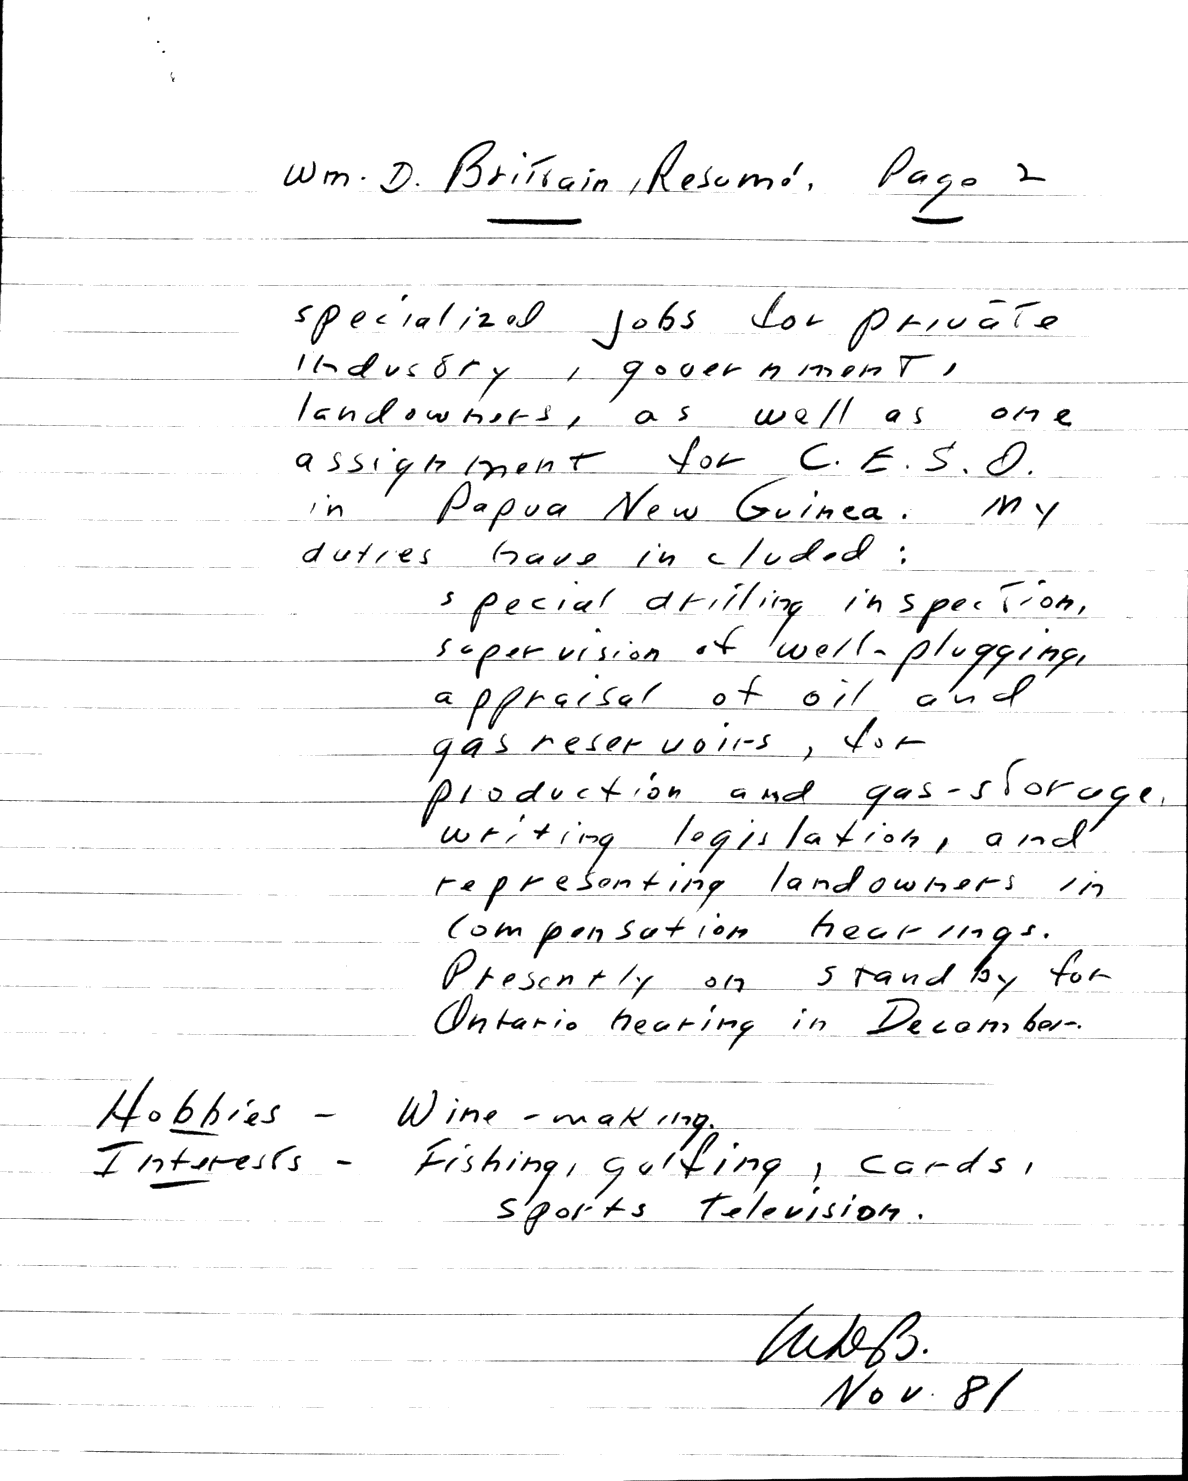 Wm. D. Brittain, Resumé. Page 2
specialized jobs for private
industry, government,
landowners, as well as one
assignment for C.E.S.O.
in Papua New Guinea. My
duties have included:
special drilling inspection,
supervision of well-plugging,
appraisal of oil and
gas reservoirs, for
production and gas-storage,
writing legislation, and
representing landowners in
compensation hearings.
Presently on standby for
Ontario hearing in December.
Hobbies - Wine-making.
Interests - Fishing, golfing, cards,
sports television.
WDB.
Nov. 81